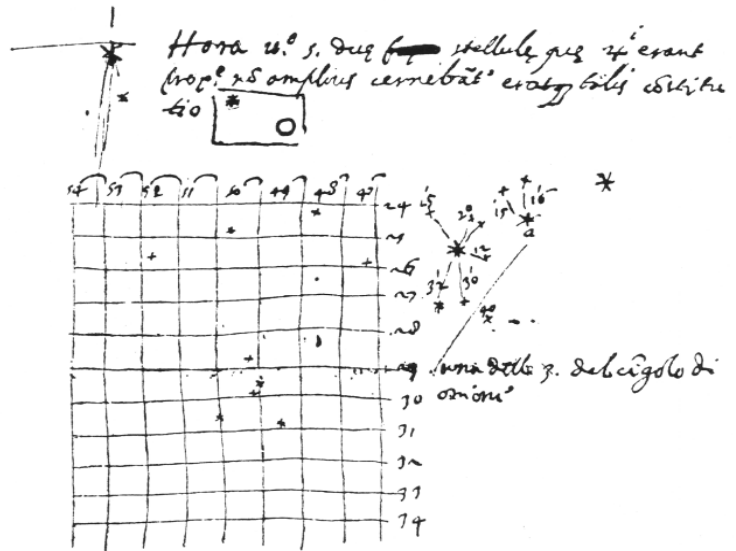 Hora n.° 5. duę stellulę quę 4 i erant
prop.e nō amplius cernebāt.r eratq3 talis cōstitu
tio
54 53 52 51 50 49 48 47
24
25
26
27
28
29
30
31
32
33
34
15 20 12 30 32
15 16 a
40
una delle 3. del cīgolo di
orione